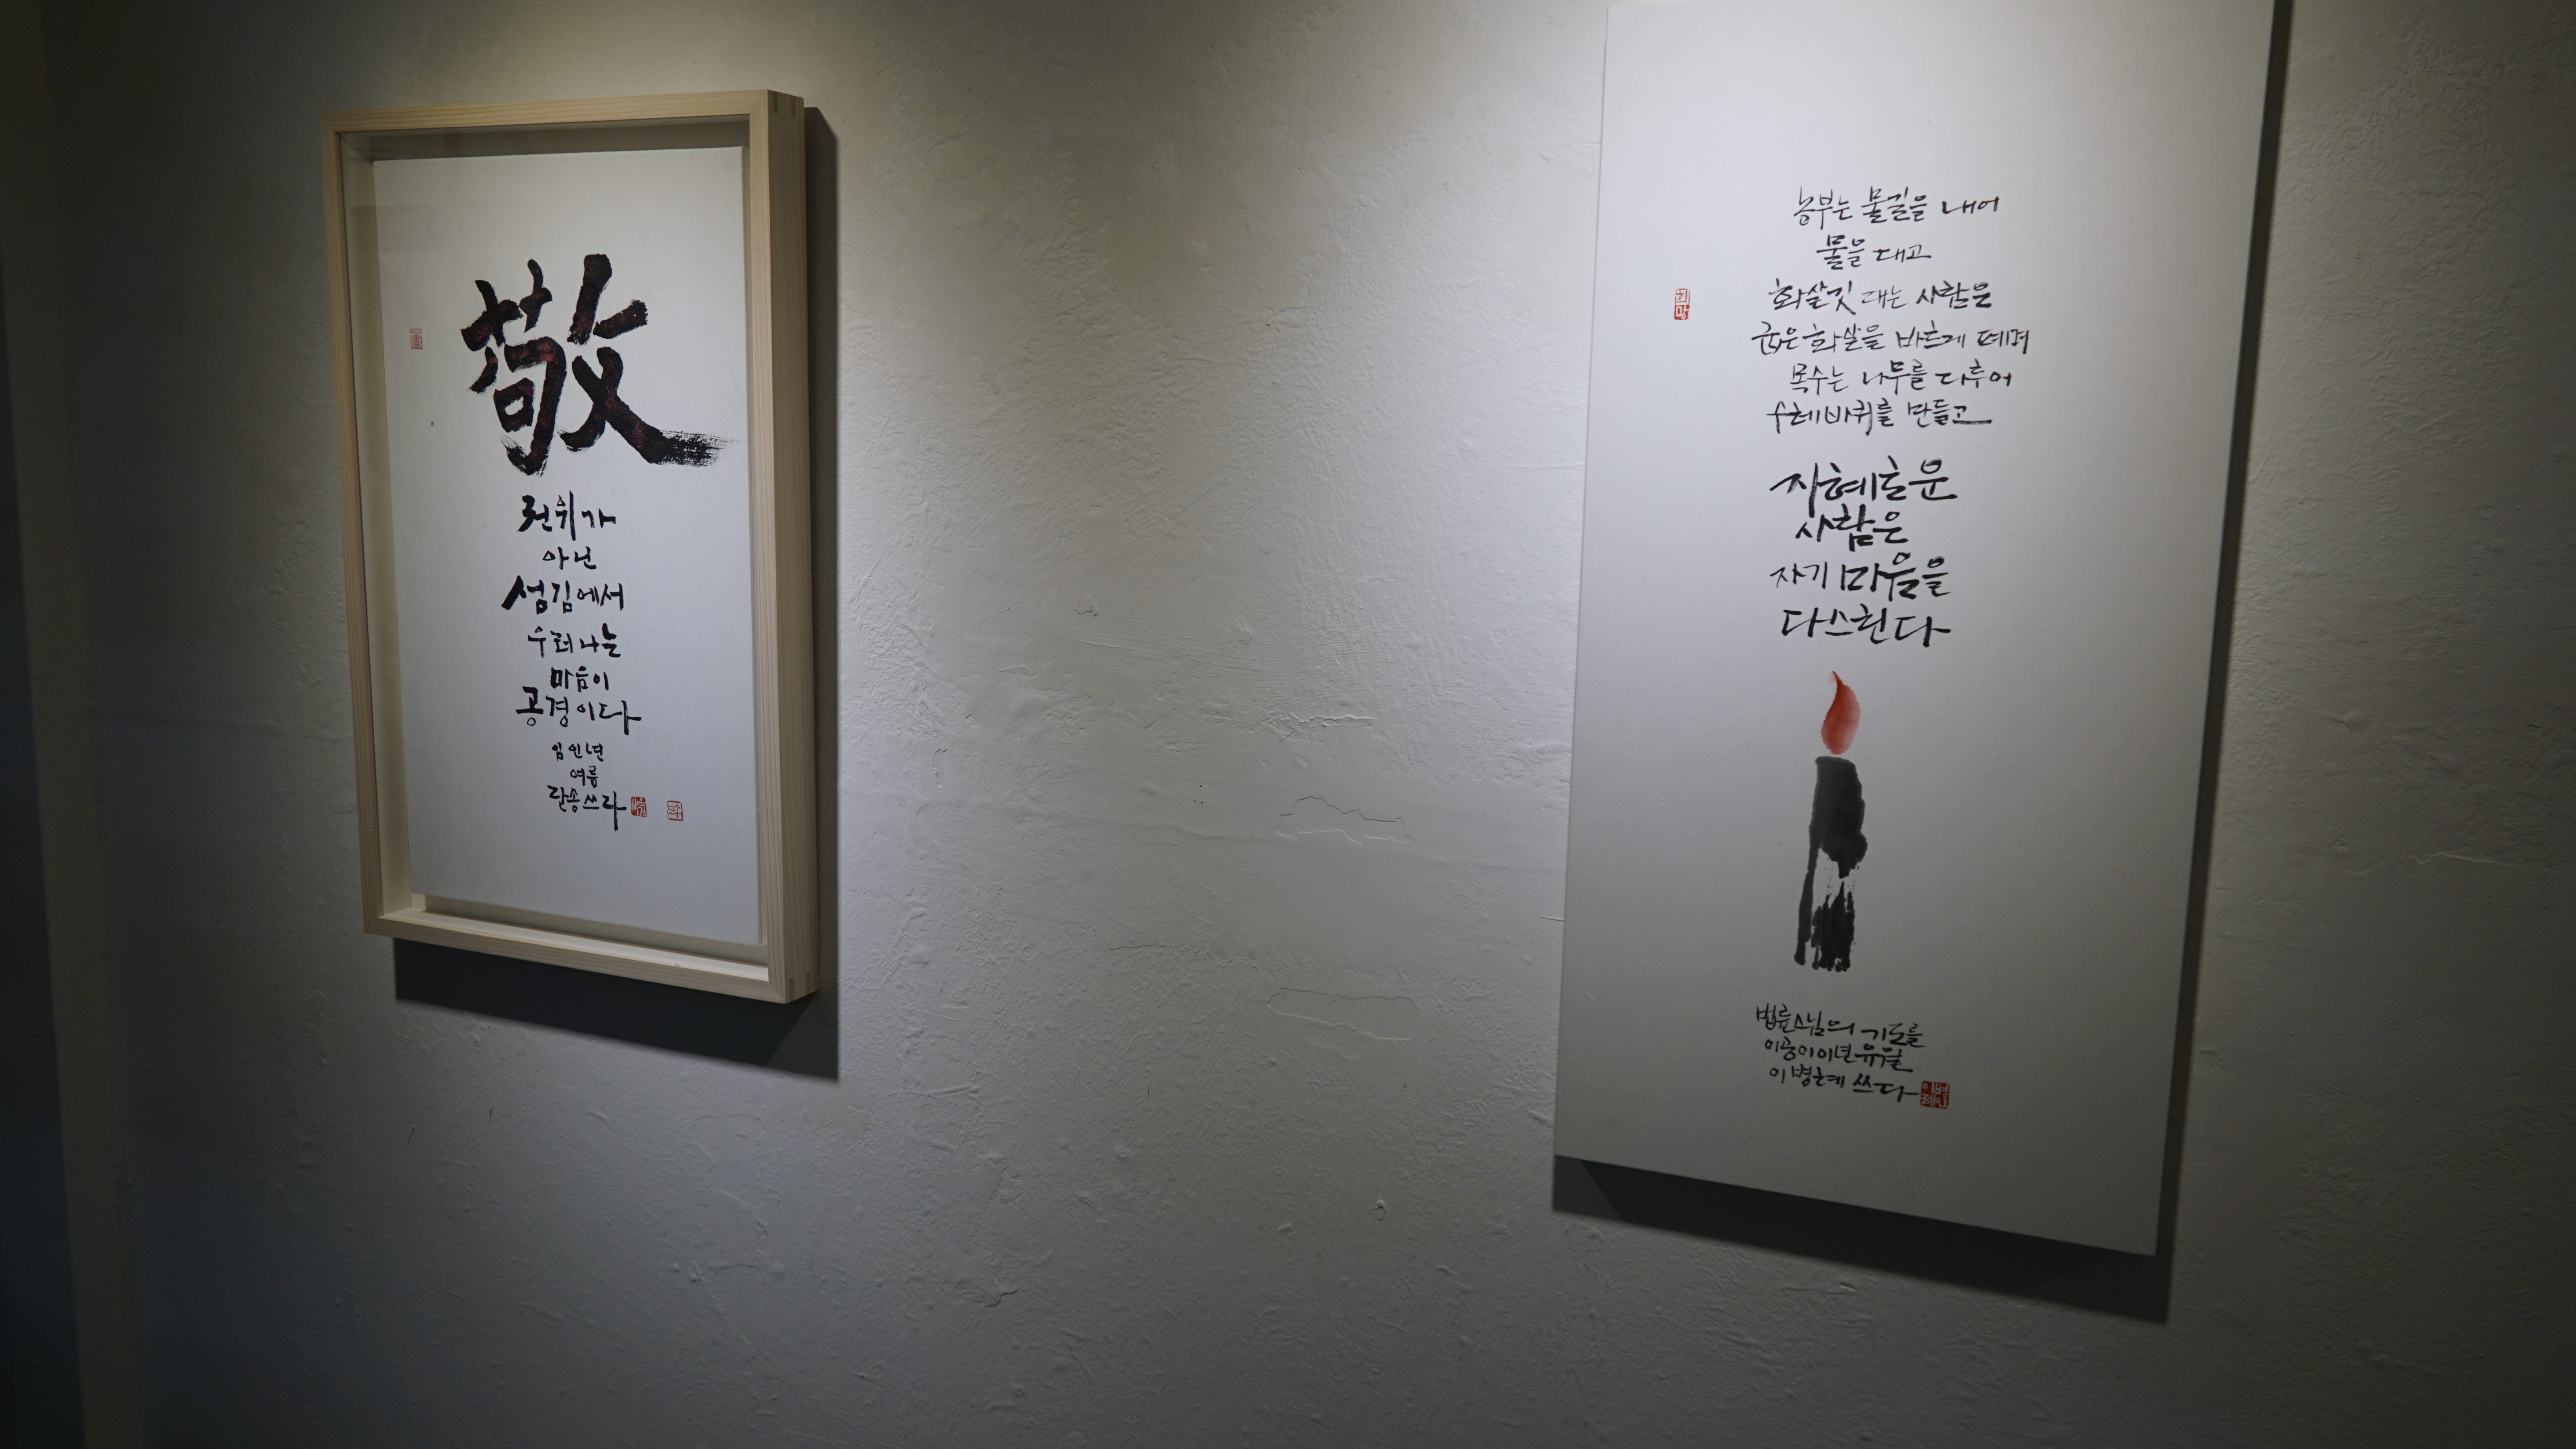 敬
권위가
아닌
섬김에서
우러나는
마음이
공경이다
임인년
여름
단송 쓰다
농부는 물길을 내어
물을 대고
희망
화살깃 대는 사람은
굽은 화살을 바르게 펴며
목수는 나무를 다루어
수레바퀴를 만들고
지혜로운
사람은
자기 마음을
다스린다
법륜스님의 기도를
이공이이년 유월
이병례 쓰다